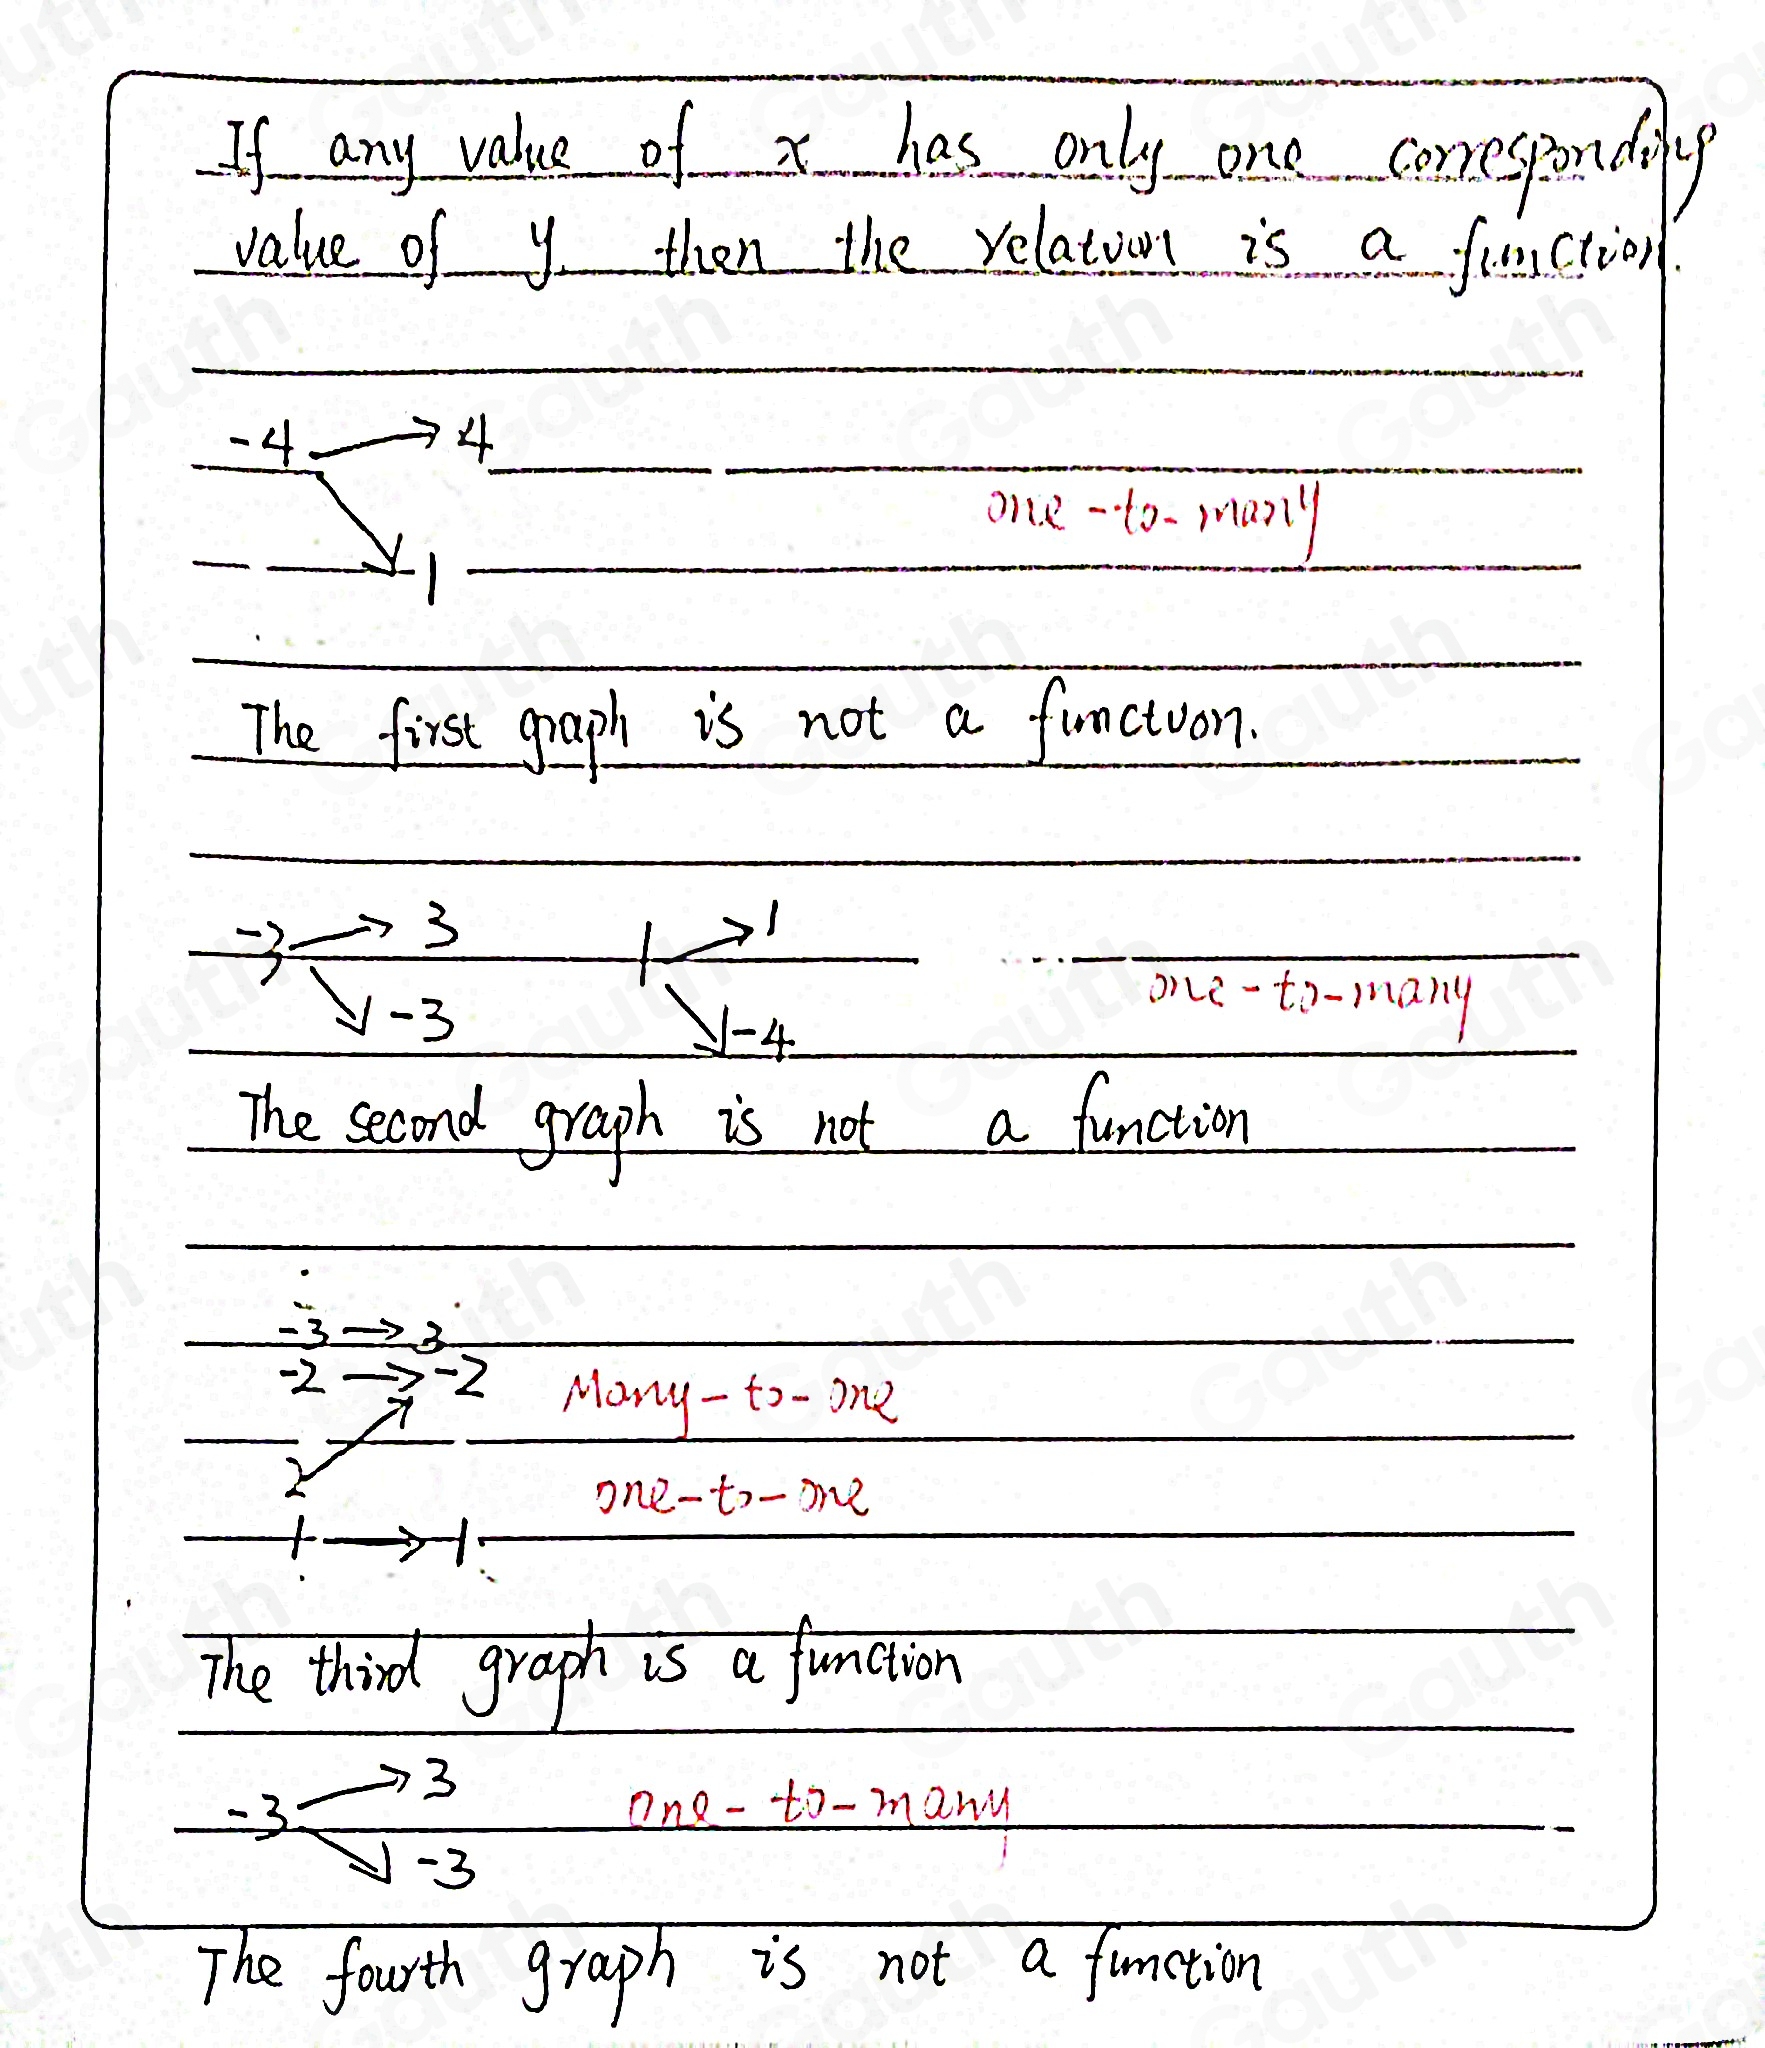 If any value of x has only one corresponding
value of y. then the relation is a function.
-4 → 4
one-to-many
1
The first graph is not a function.
-3 → 3 1 → 1
-3 -4 one-to-many
The second graph is not a function
-3 → 3
-2 → -2 Many-to-one
2 one-to-one
1 → 1
The third graph is a function
-3 → 3 one-to-many
-3
The fourth graph is not a function
Gauth